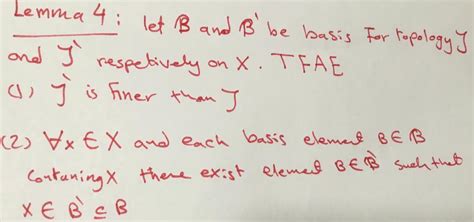 Lemma 4 : let B and B` be basis For topology J
and J` respetively on X . TFAE
(1) J` is finer than J
(2) ∀x ∈ X and each basis element B∈B
Contuning X there exist element B∈B` such that
X ∈ B` ⊆ B